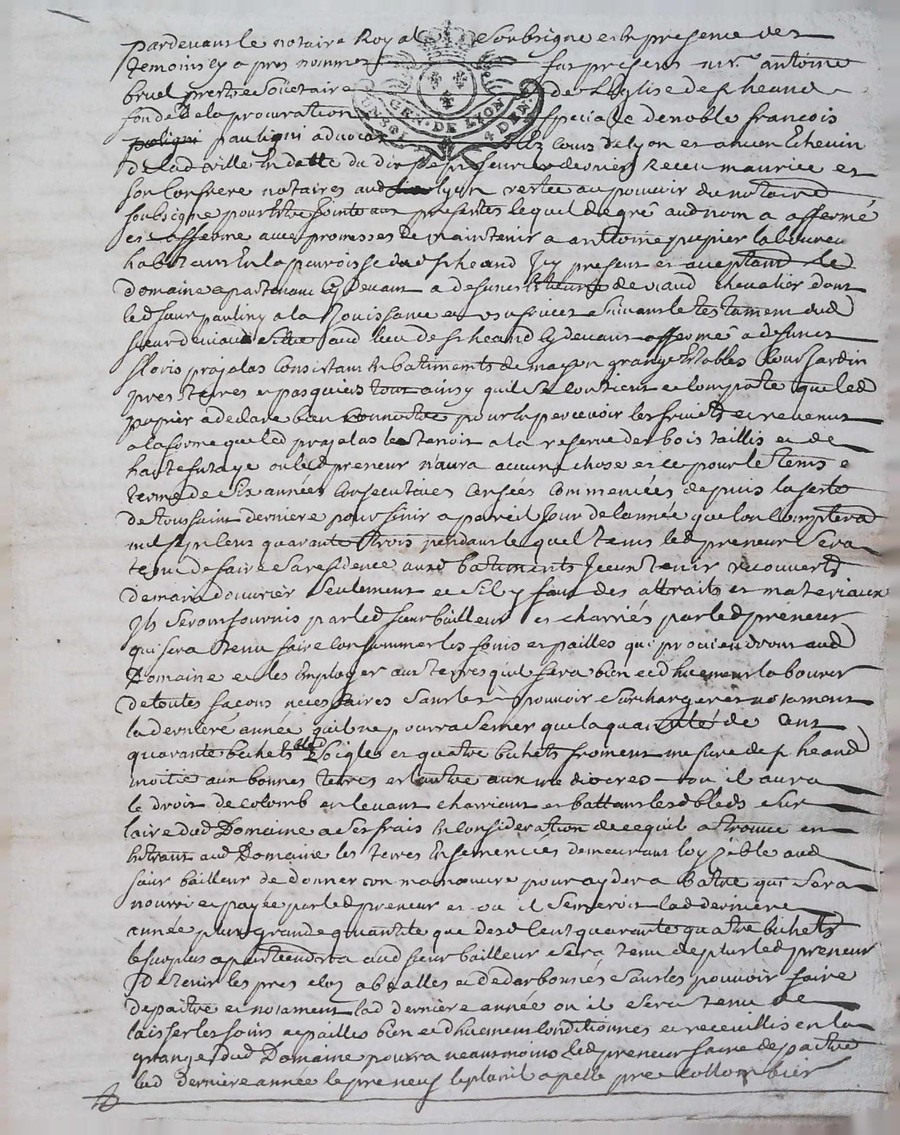 pardevant le notaire Royal Soubsigne et en presence des
temoins cy apres nommes fut present mr. antoine
bruel prestre Soćietaire de l'Eglise de st heand
fondé de la procuration specialle de noble francois
pauligni advocat es cours de lyon et ancien Echevin
de lad ville en datte du dix recue maurice et
son Confrere notaires aud lyon restée au pouvoir du notaire
soubsigne pour estre jointe aux presentes lequel de gré aud nom a affermé
et afferme avec promesses de maintenir a antoine papier laboureur
habitant en la parroisse dud st heand Icy present et acceptant le
domaine apartenant cy devant a defunt de viaud chevalier dont
led sieur pauligny a la Jouissance et usufruict suivant le testament dud
sieur de viaud situé aud lieu de st heand cy devant affermé a defunt
floris prajalas Consistant en batiments de maison grange Estables Cour Jardin
pres terres et pasquiers tout ainsy quil se contient et comporte que led
papier a declaré bien connoitre pour en percevoir les fruicts et revenus
a la forme que led prajalas le tenoit a la reserve des bois taillis et de
haute futaye ou led preneur n'aura aucune chose et ce pour le tems e
terme de six années consecutives censées commencées depuis la feste
de toussaint derniere pour finir a pareil Jour de l'année que lon comptera
mil sept cens quarante trois pendant lequel tems led preneur sera
tenu de faire sa residence auxd batiments Iceux tenir recouverts
de main douvrier seulement et s'il y faut des attraits et materiaux
Ils seront fournis par led sieur bailleur et charriés par led preneur
qui sera tenu faire consommer les foins et pailles qui proviendront aud
Domaine et les Employer aux terres quil sera bien et dhuement labourer
de toutes facons necessaires sans les pouvoir surcharger et notament
la derniere année quil ne pourra semer que la quantité de cent
quarante bichets bled soigle et quatre bichets froment mesure de st heand
moitié aux bonnes terres et lautre aux mediocres ou il aura
le droit de colomb en levant charriant et battant lesd bleds sur
laire dud Domaine a ses frais en consideration de ce quil a trouvé en
entrant aud Domaine les terres Ensemencées demeurant loysible aud
sieur bailleur de donner son manoeuvre pour ayder a batre qui sera
nourri et payé par led preneur et ou il semeroit lad derniere
année plus grande quantité que desd cent quarante quatre bichets
le surplus apartiendra aud sieur bailleur sera tenu de plus led preneur
de tenir les pres clos abeallés et dedarbonnés sans les pouvoir faire
depaitre et notament lad derniere année ou il sera tenu de
laisser les foins et pailles bien et dhuement conditionnés et receuillis en la
grange dud Domaine pourra neammoins led preneur faire depaitre
lad derniere année le pre neuf le planil apellé pre collombier